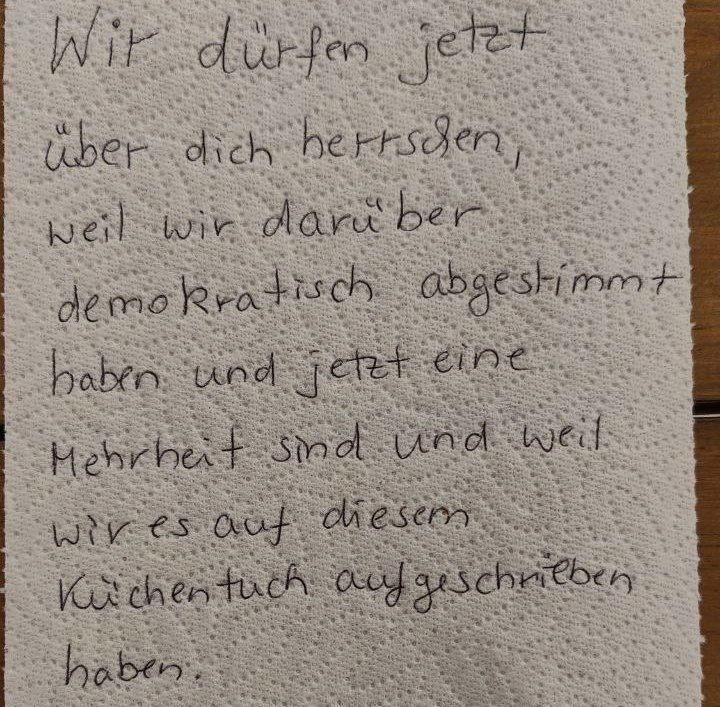 Wir dürfen jetzt
über dich herrschen,
weil wir darüber
demokratisch abgestimmt
haben und jetzt eine
Mehrheit sind und weil
wir es auf diesem
Küchentuch aufgeschrieben
haben.